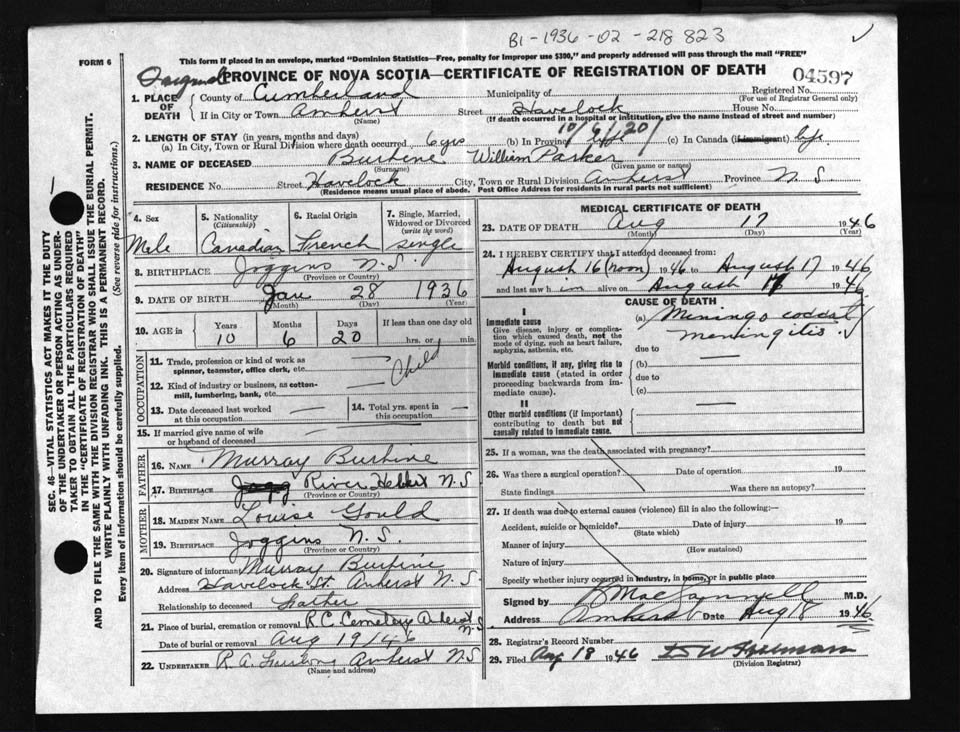 B1-1936-02-218 823
This form if placed in an envelope, marked "Dominion Statistics—Free, penalty for improper use $300," and properly addressed will pass through the mail "FREE"
FORM 6
PROVINCE OF NOVA SCOTIA—CERTIFICATE OF REGISTRATION OF DEATH
04597
1. PLACE OF DEATH County of Cumberland Municipality of Registered No. (For use of Registrar General only)
If in City or Town Amherst (Name) Street Havelock House No.
(If death occurred in a hospital or institution, give the name instead of street and number)
2. LENGTH OF STAY (in years, months and days) 10/6/20
(a) In City, Town or Rural Division where death occurred 6 yrs (b) In Province life (c) In Canada (if immigrant) life
3. NAME OF DECEASED Burbine William Parker
(Surname) (Given name or names)
RESIDENCE No. Street Havelock City, Town or Rural Division Amherst Province N S
(Residence means usual place of abode. Post Office Address for residents in rural parts not sufficient)
4. Sex Male
5. Nationality (Citizenship) Canadian
6. Racial Origin French
7. Single, Married, Widowed or Divorced (write the word) single
8. BIRTHPLACE Joggins N.S.
(Province or Country)
9. DATE OF BIRTH Jan 28 1936
(Month) (Day) (Year)
10. AGE in Years 10 Months 6 Days 20 If less than one day old hrs. or min.
OCCUPATION
11. Trade, profession or kind of work as spinner, teamster, office clerk, etc. Child
12. Kind of industry or business, as cotton-mill, lumbering, bank, etc.
13. Date deceased last worked at this occupation
14. Total yrs. spent in this occupation
15. If married give name of wife or husband of deceased
FATHER
16. NAME Murray Burbine
17. BIRTHPLACE River Hebert N.S
(Province or Country)
MOTHER
18. MAIDEN NAME Louise Gould
19. BIRTHPLACE Joggins N.S.
(Province or Country)
20. Signature of informant Murray Burbine
Address Havelock St. Amherst N.S.
Relationship to deceased Father
21. Place of burial, cremation or removal R.C. Cemetery Amherst N.S
Date of burial or removal Aug 19/46
22. UNDERTAKER R.A. Amherst N.S
(Name and address)
MEDICAL CERTIFICATE OF DEATH
23. DATE OF DEATH Aug 17 1946
(Month) (Day) (Year)
24. I HEREBY CERTIFY that I attended deceased from:
August 16 (noon) 1946 to August 17 1946
and last saw him alive on August 17 1946
CAUSE OF DEATH
I
Immediate cause (a) Meningococcal
Give disease, injury or complication which caused death, not the mode of dying, such as heart failure, asphyxia, asthenia, etc. meningitis
due to
Morbid conditions, if any, giving rise to immediate cause (stated in order proceeding backwards from immediate cause). (b)
due to
(c)
II
Other morbid conditions (if important) contributing to death but not causally related to immediate cause.
25. If a woman, was the death associated with pregnancy?
26. Was there a surgical operation? Date of operation 19
State findings Was there an autopsy?
27. If death was due to external causes (violence) fill in also the following:—
Accident, suicide or homicide? Date of injury 19
(State which)
Manner of injury
(How sustained)
Nature of injury
Specify whether injury occurred in industry, in home, or in public place
Signed by M.D.
Address Amherst Date Aug 18 1946
28. Registrar's Record Number
29. Filed Aug 18 1946
(Division Registrar)
SEC. 46—VITAL STATISTICS ACT MAKES IT THE DUTY
OF THE UNDERTAKER OR PERSON ACTING AS UNDER-
TAKER TO OBTAIN ALL THE PARTICULARS REQUIRED
IN THE "CERTIFICATE OF REGISTRATION OF DEATH"
AND TO FILE THE SAME WITH THE DIVISION REGISTRAR WHO SHALL ISSUE THE BURIAL PERMIT.
WRITE PLAINLY WITH UNFADING INK. THIS IS A PERMANENT RECORD.
Every item of information should be carefully supplied. (See reverse side for instructions.)